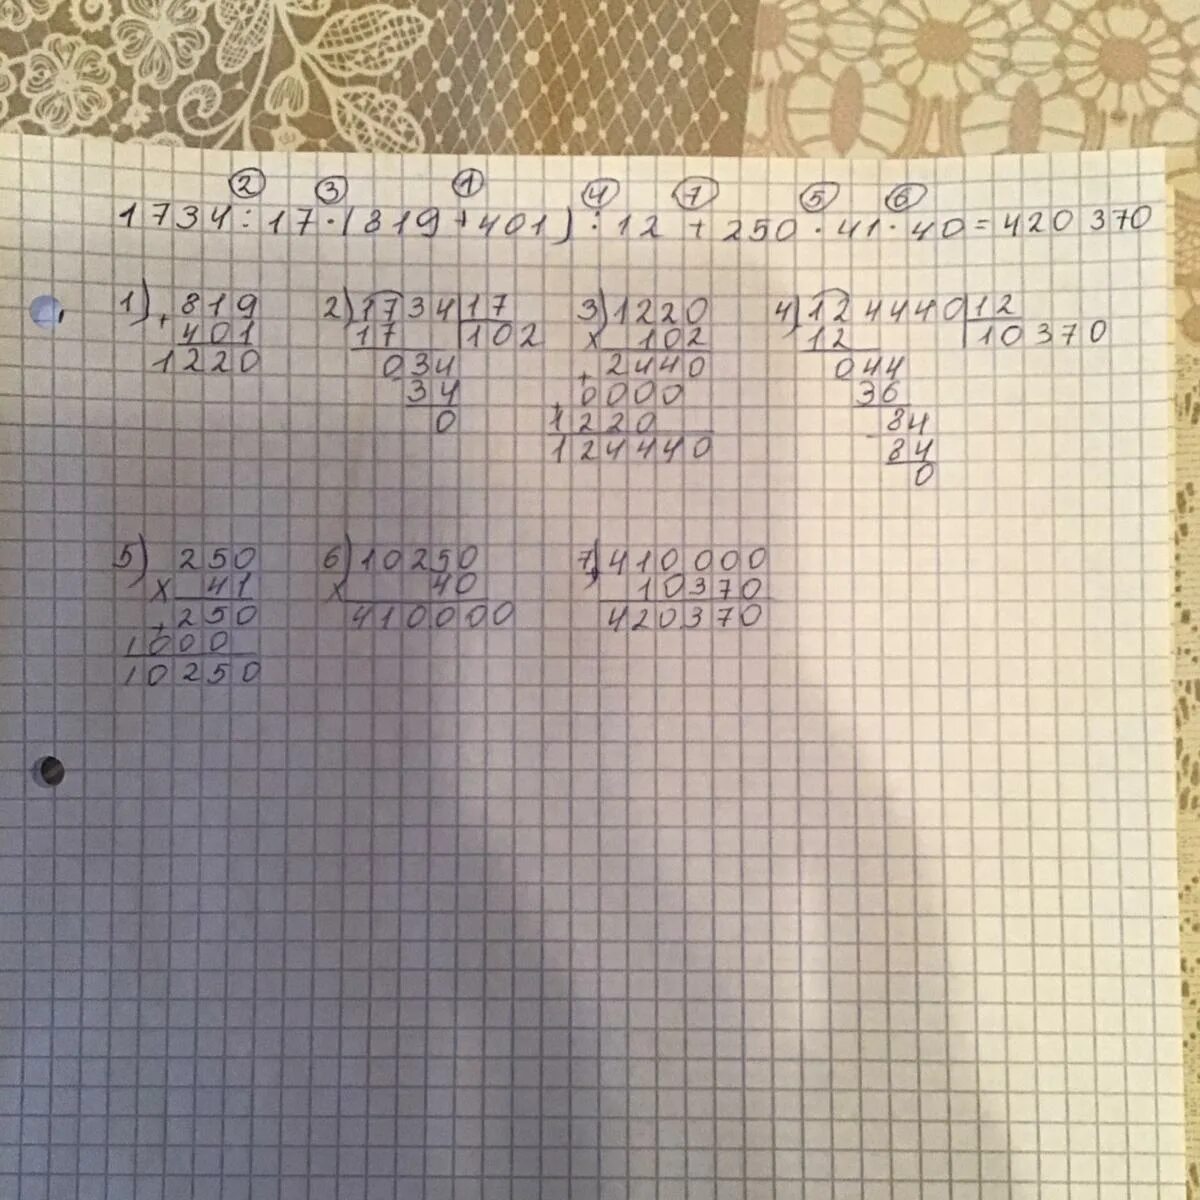 ② ③ ① ④ ⑦ ⑤ ⑥
1734:17·(819+401):12+250·41·40=420 370
1) 819 2) 1734 17 3) 1220 4) 124440 12
+ 401 17 102 x 102 12 10370
1220 034 + 2440 044
34 + 0000 36
0 1220 84
124440 84
0
5) 250 6) 10250 7) 410 000
x 41 x 40 + 10370
+ 250 410000 420370
1000
10250